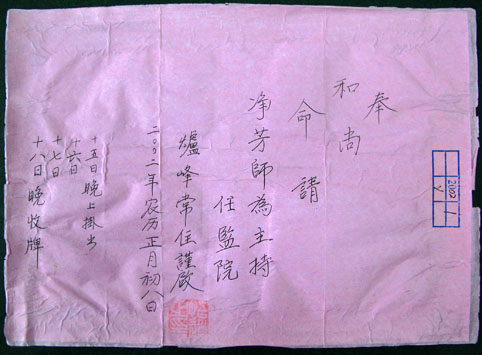 奉
和尚
命請
净芳師為主持
任監院
爐峰常住謹啟
二00二年农历正月初八日
十五日晚上掛出
十六日
十七日
十八日晚收牌
2002